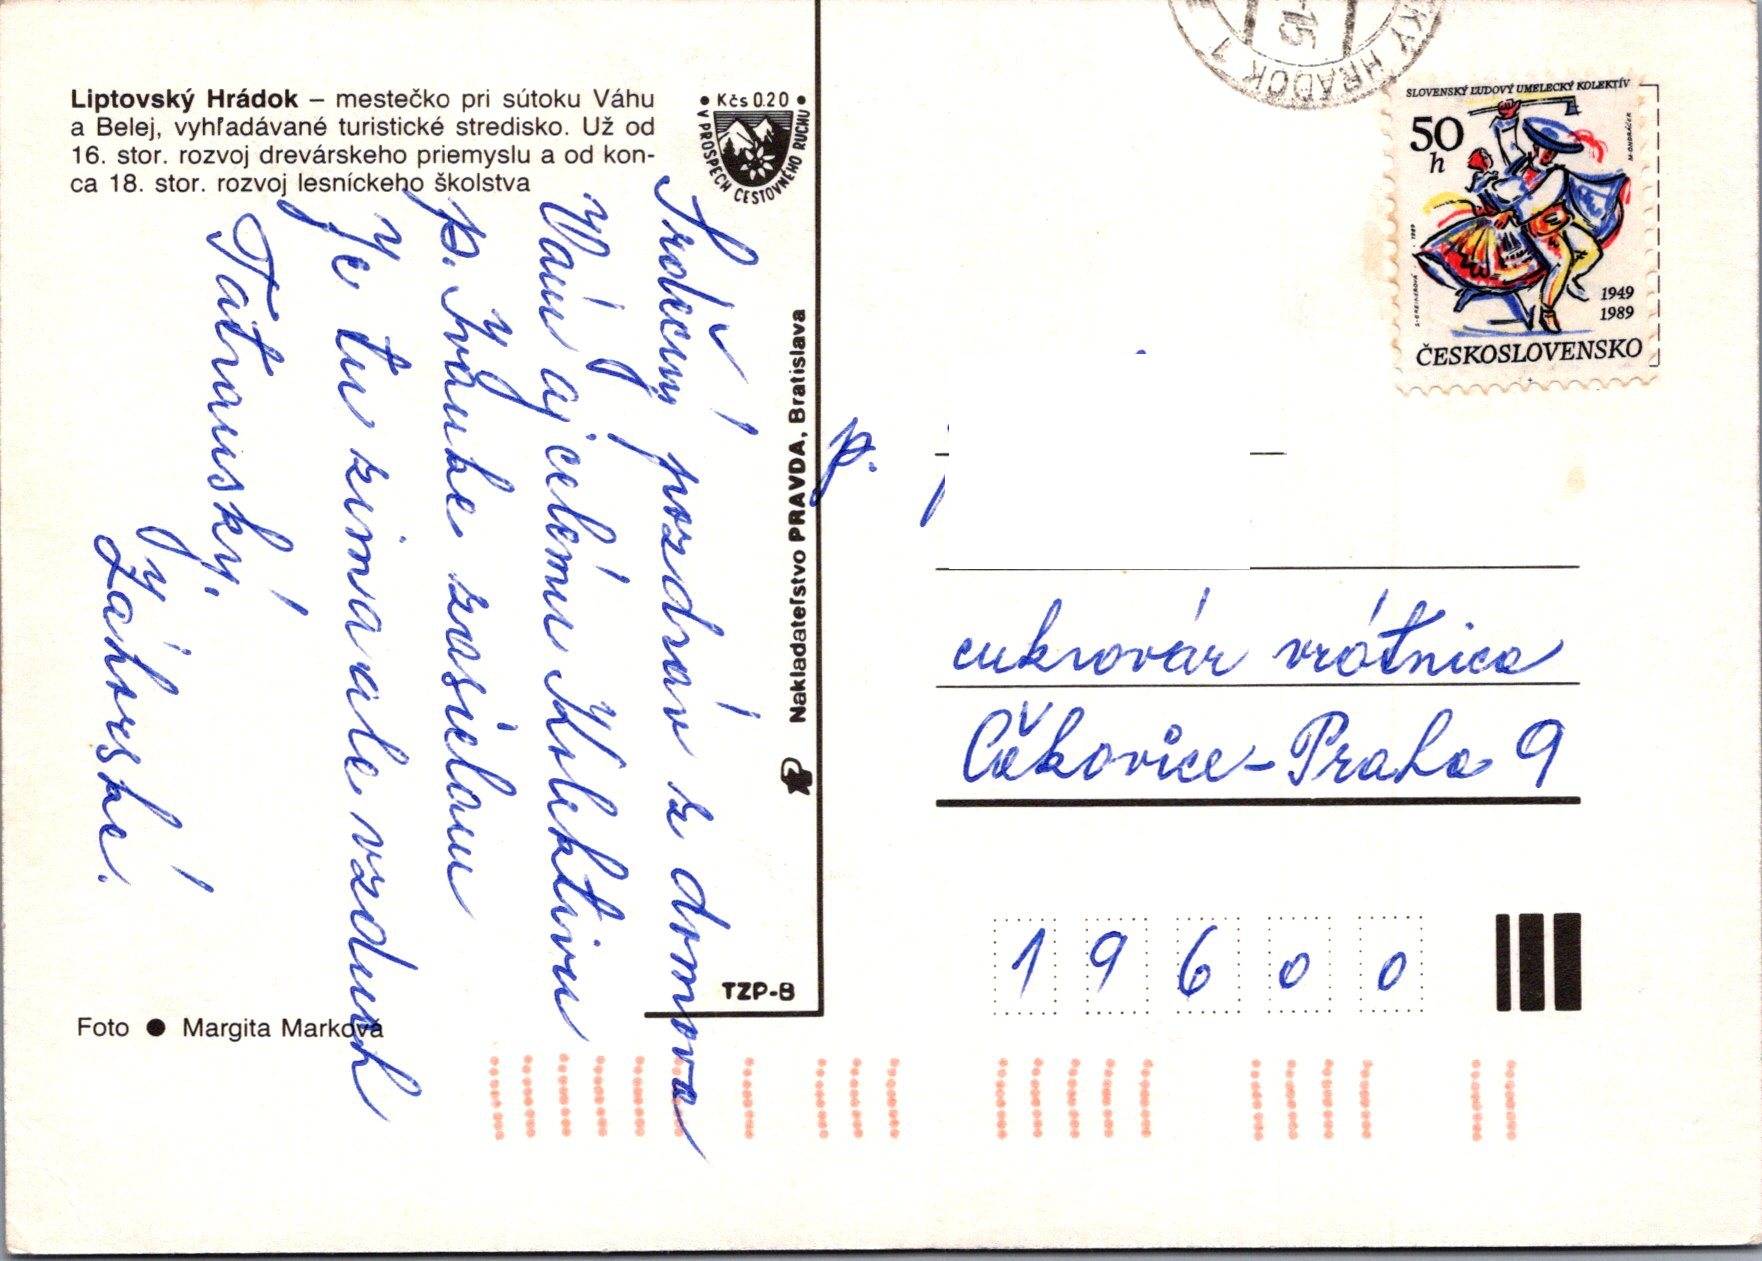 Liptovský Hrádok – mestečko pri sútoku Váhu
a Belej, vyhľadávané turistické stredisko. Už od
16. stor. rozvoj drevárskeho priemyslu a od kon-
ca 18. stor. rozvoj lesníckeho školstva
• Kčs 0.20 •
V PROSPECH CESTOVNÉHO RUCHU
Srdečný pozdrav z domova
Vám aj celému Kolektivu
p. Ivanke zasielam
Je tu zima ale vzduch
Tatranský.
Záhorská.
Nakladateľstvo PRAVDA, Bratislava
TZP-8
Foto ● Margita Marková
KÝ HRÁDOK 1
-15
SLOVENSKÝ ĽUDOVÝ UMELECKÝ KOLEKTÍV
50
h
M. ONDRÁČEK
1989
1949
1989
ČESKOSLOVENSKO
p.
cukrovár vrátnica
Čakovice - Praha 9
1 9 6 0 0